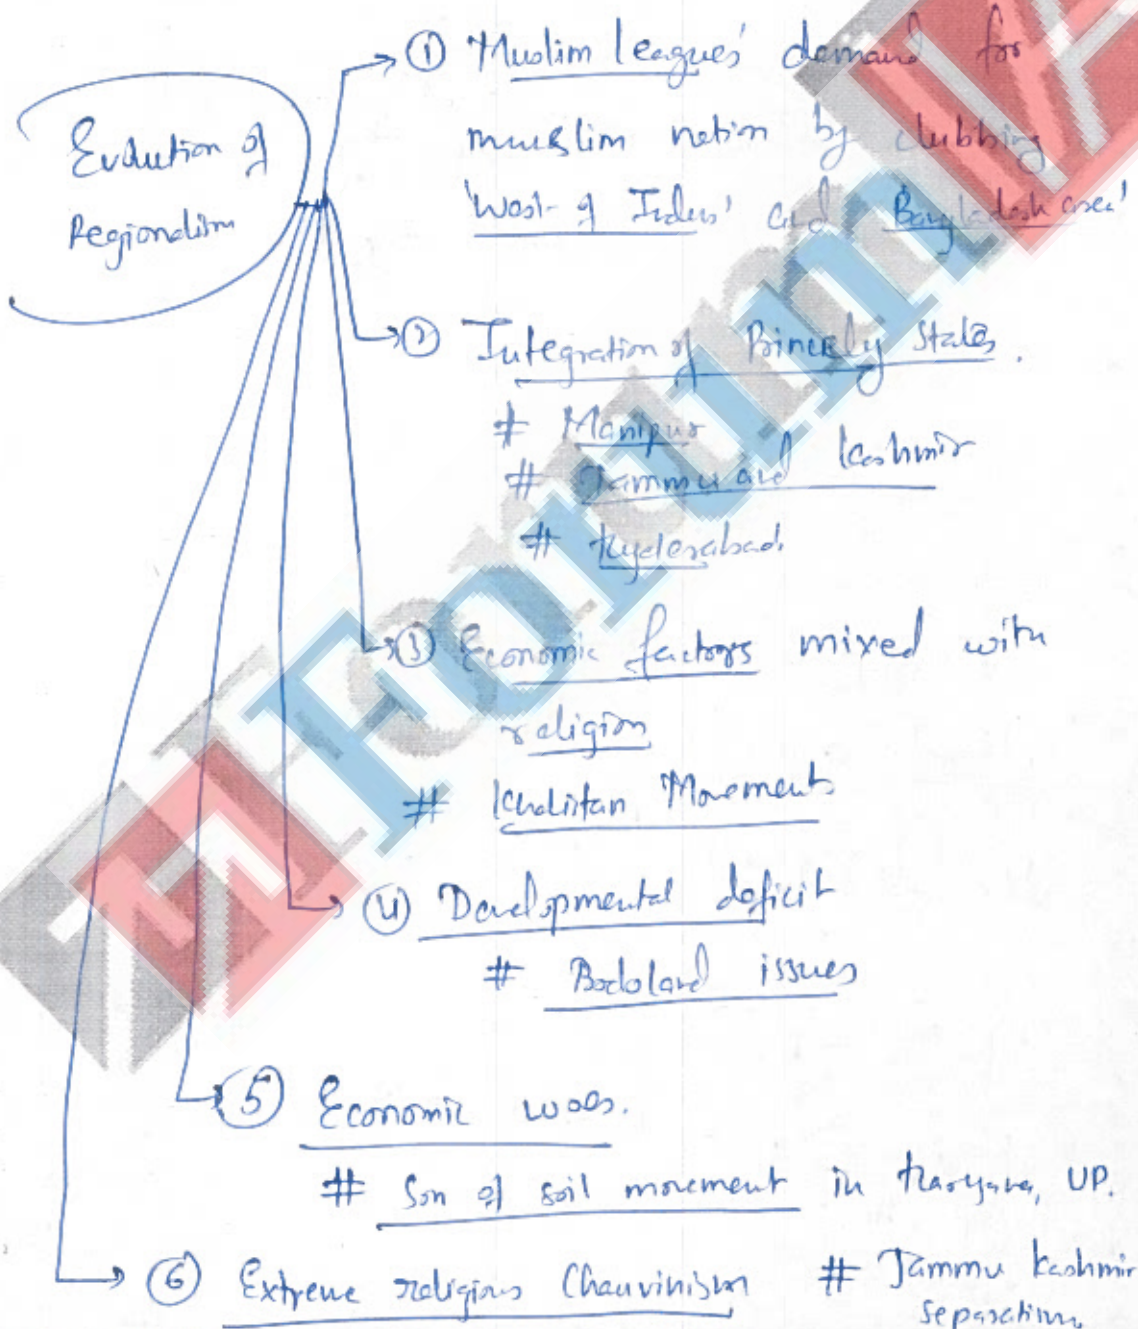 Evolution of
Regionalism
① Muslim leagues' demand for
muslim nation by clubbing
'West of Indus' and 'Bangladesh area'
② Integration of Princely States.
# Manipur
# Jammu and Kashmir
# Hyderabad.
③ Economic factors mixed with
religion
# Khalistan Movements
④ Developmental deficit
# Bodoland issues
⑤ Economic woes.
# Son of soil movement in Haryana, UP.
⑥ Extreme religious Chauvinism # Jammu Kashmir
separatism
Forum IAS